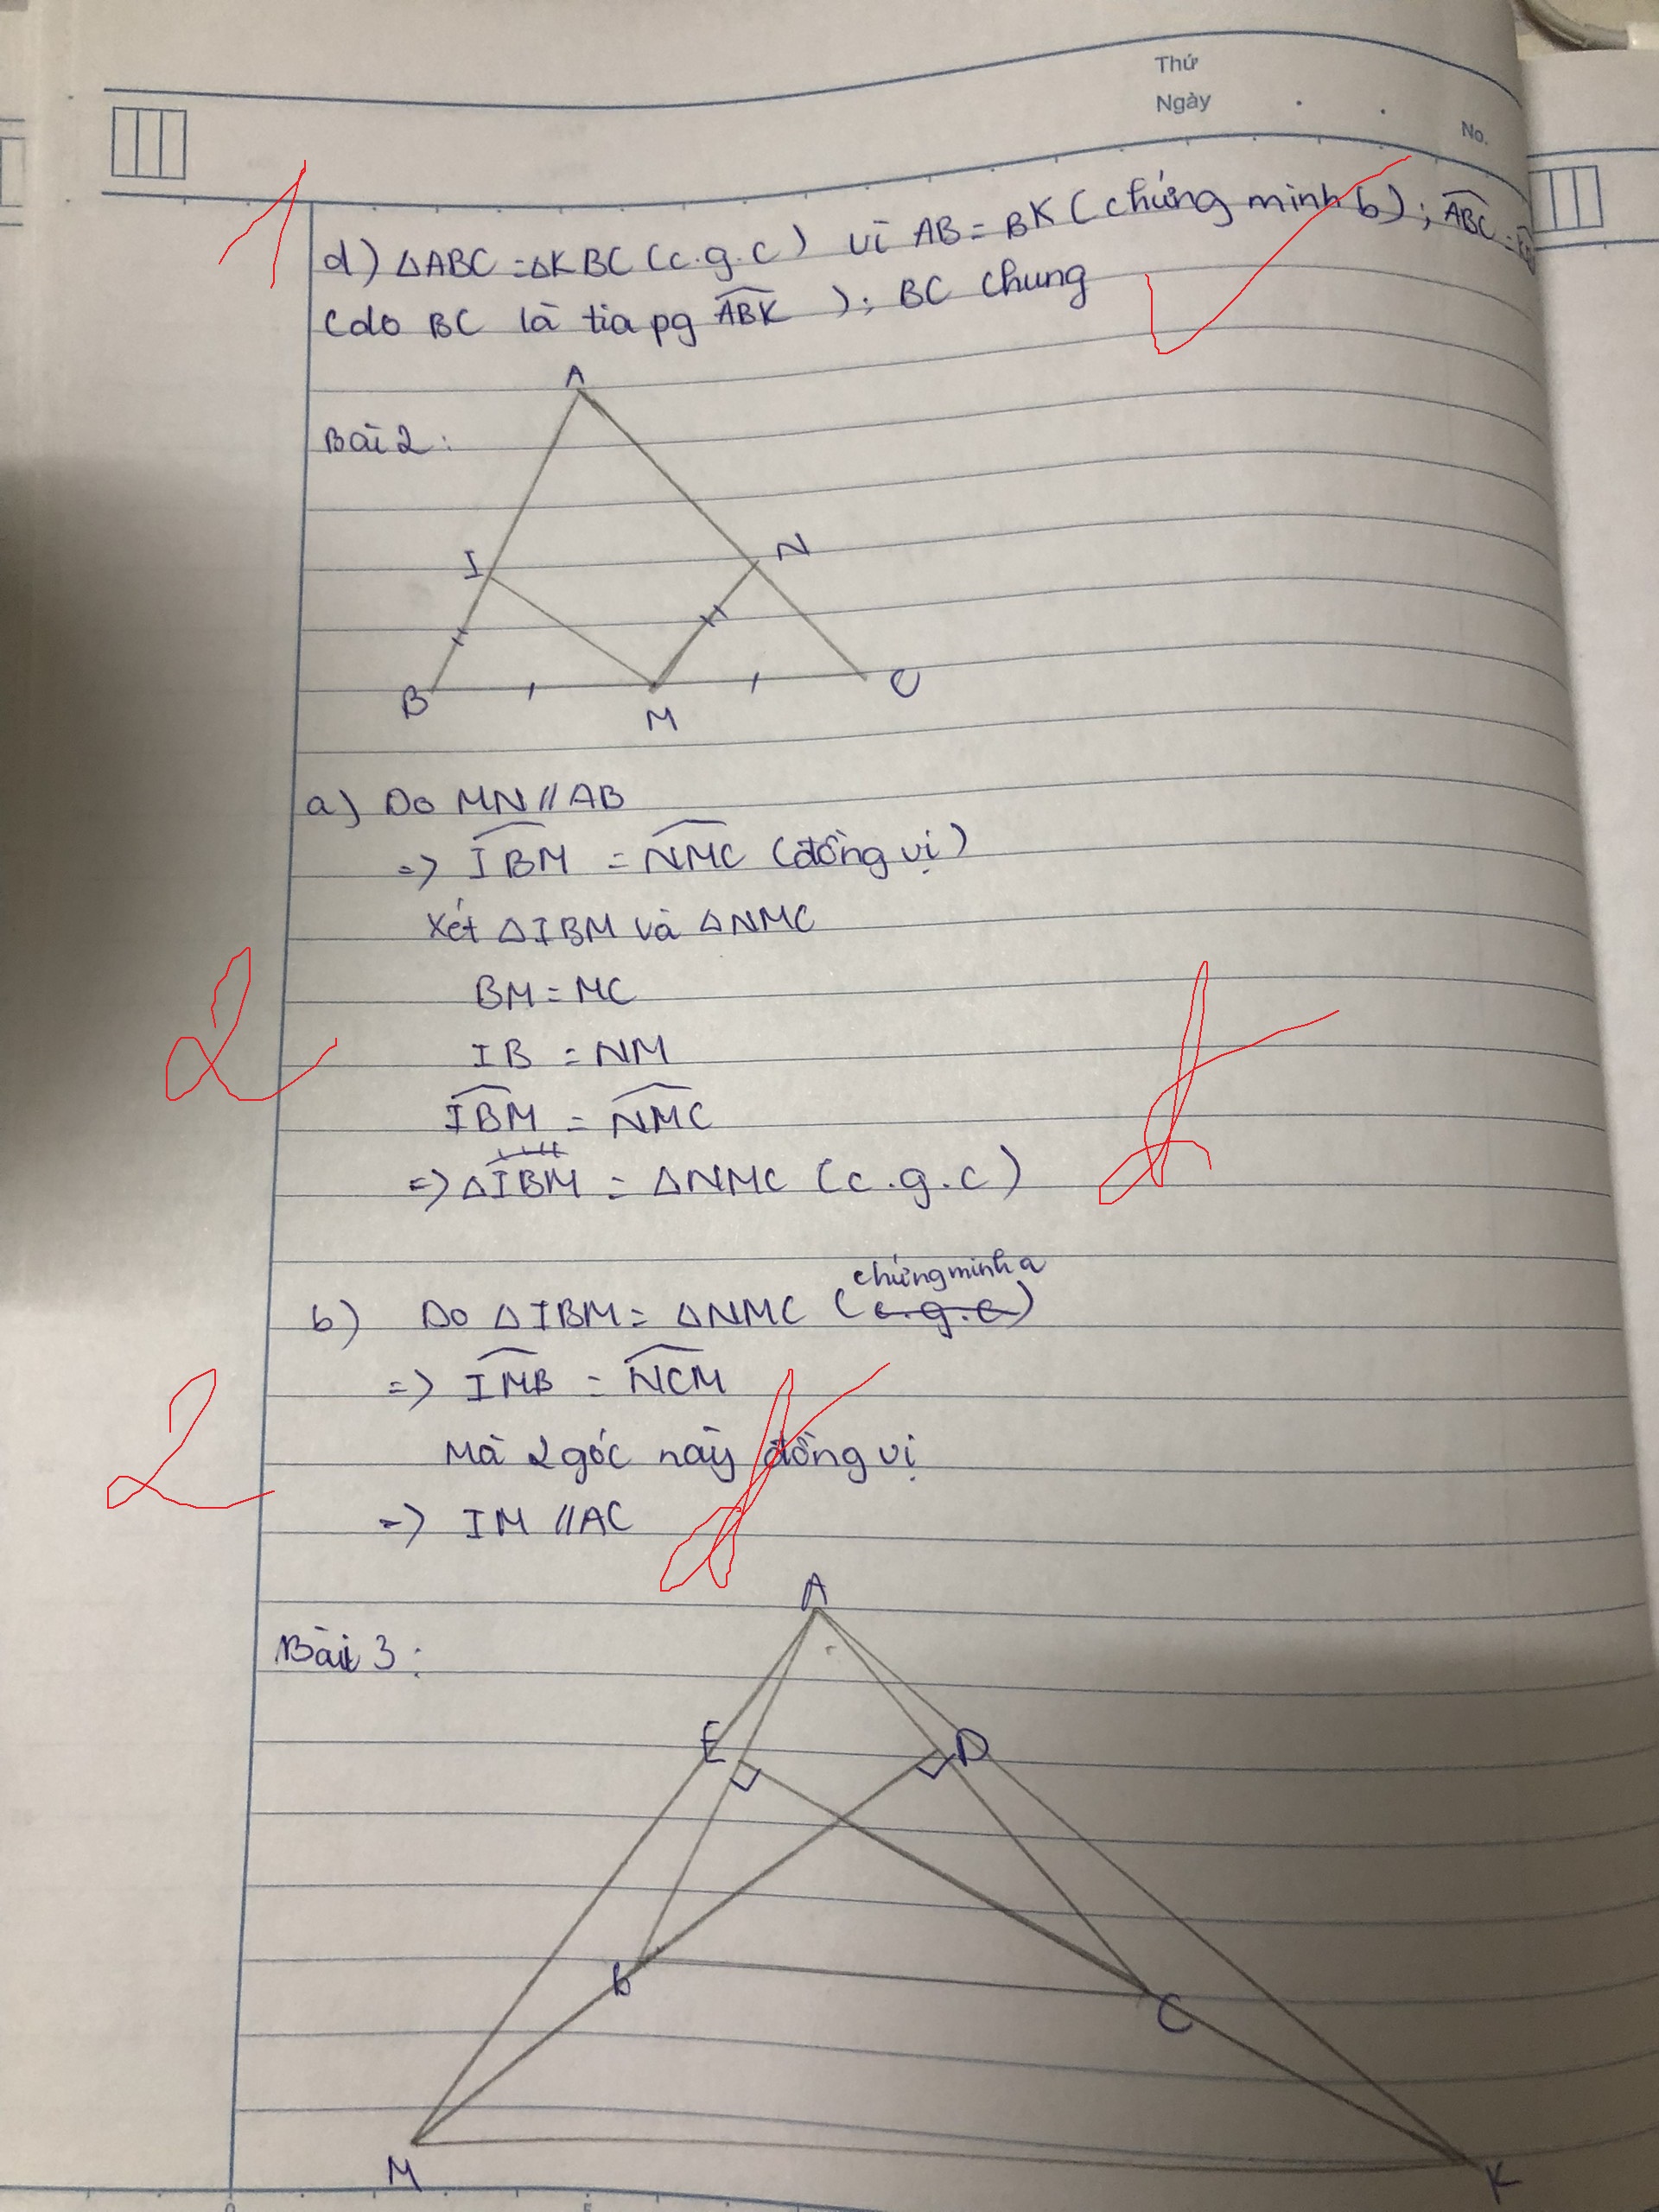 Thứ
Ngày
No.
1
d) △ABC = △KBC (c.g.c) vì AB = BK (chứng minh b); ABC =
(do BC là tia pg ABK ); BC chung
Bài 2:
A
I
N
B
M
C
a) Do MN // AB
=> IBM = NMC (đồng vị)
Xét △IBM và △NMC
BM = MC
IB = NM
2
IBM = NMC
=> △IBM = △NMC (c.g.c)
chứng minh a
b) Do △IBM = △NMC (c.g.c)
=> IMB = NCM
2
Mà 2 góc này đồng vị
=> IM // AC
Bài 3:
A
E
D
B
C
M
K